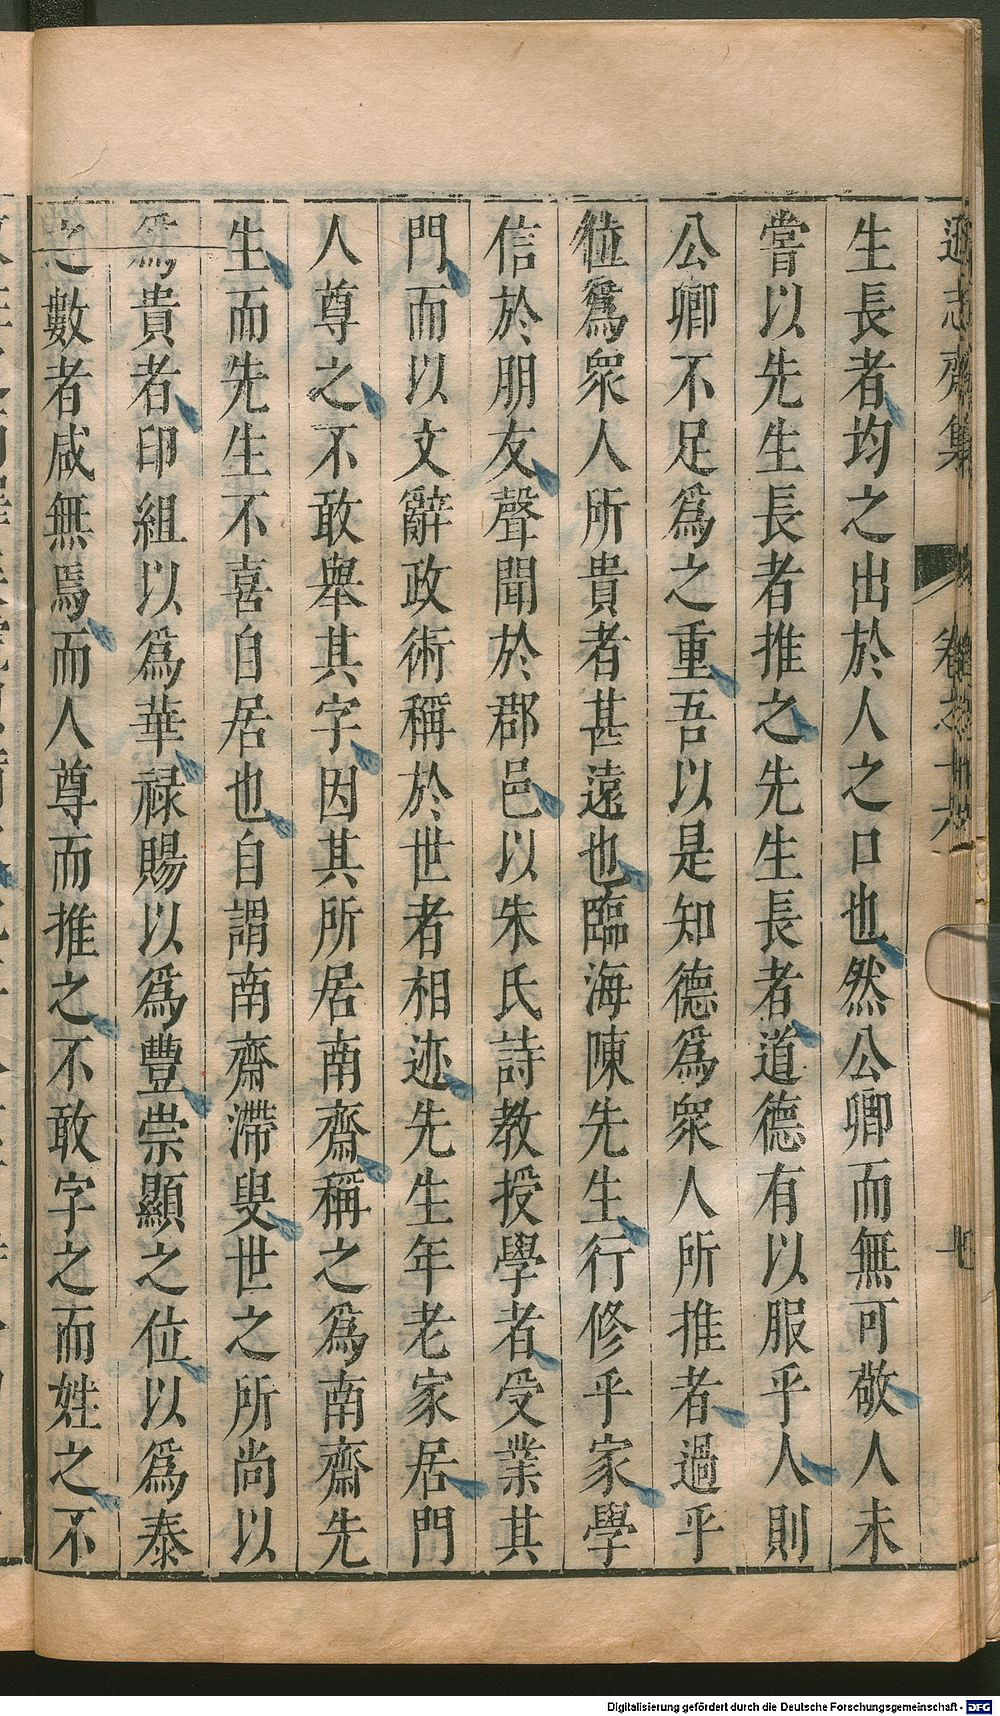 遜志齋集 卷之十六
生長者均之出於人之口也然公卿而無可敬人未
嘗以先生長者推之先生長者道德有以服乎人則
公卿不足爲之重吾以是知德爲衆人所推者過乎
位爲衆人所貴者甚遠也臨海陳先生行修乎家學
信於朋友聲聞於郡邑以朱氏詩教授學者受業其
門而以文辭政術稱於世者相迹先生年老家居門
人尊之不敢舉其字因其所居南齋稱之爲南齋先
生而先生不喜自居也自謂南齋滯叟世之所尚以
爲貴者印組以爲華禄賜以爲豐崇顯之位以爲泰
之數者咸無焉而人尊而推之不敢字之而姓之不
Digitalisierung gefördert durch die Deutsche Forschungsgemeinschaft - DFG